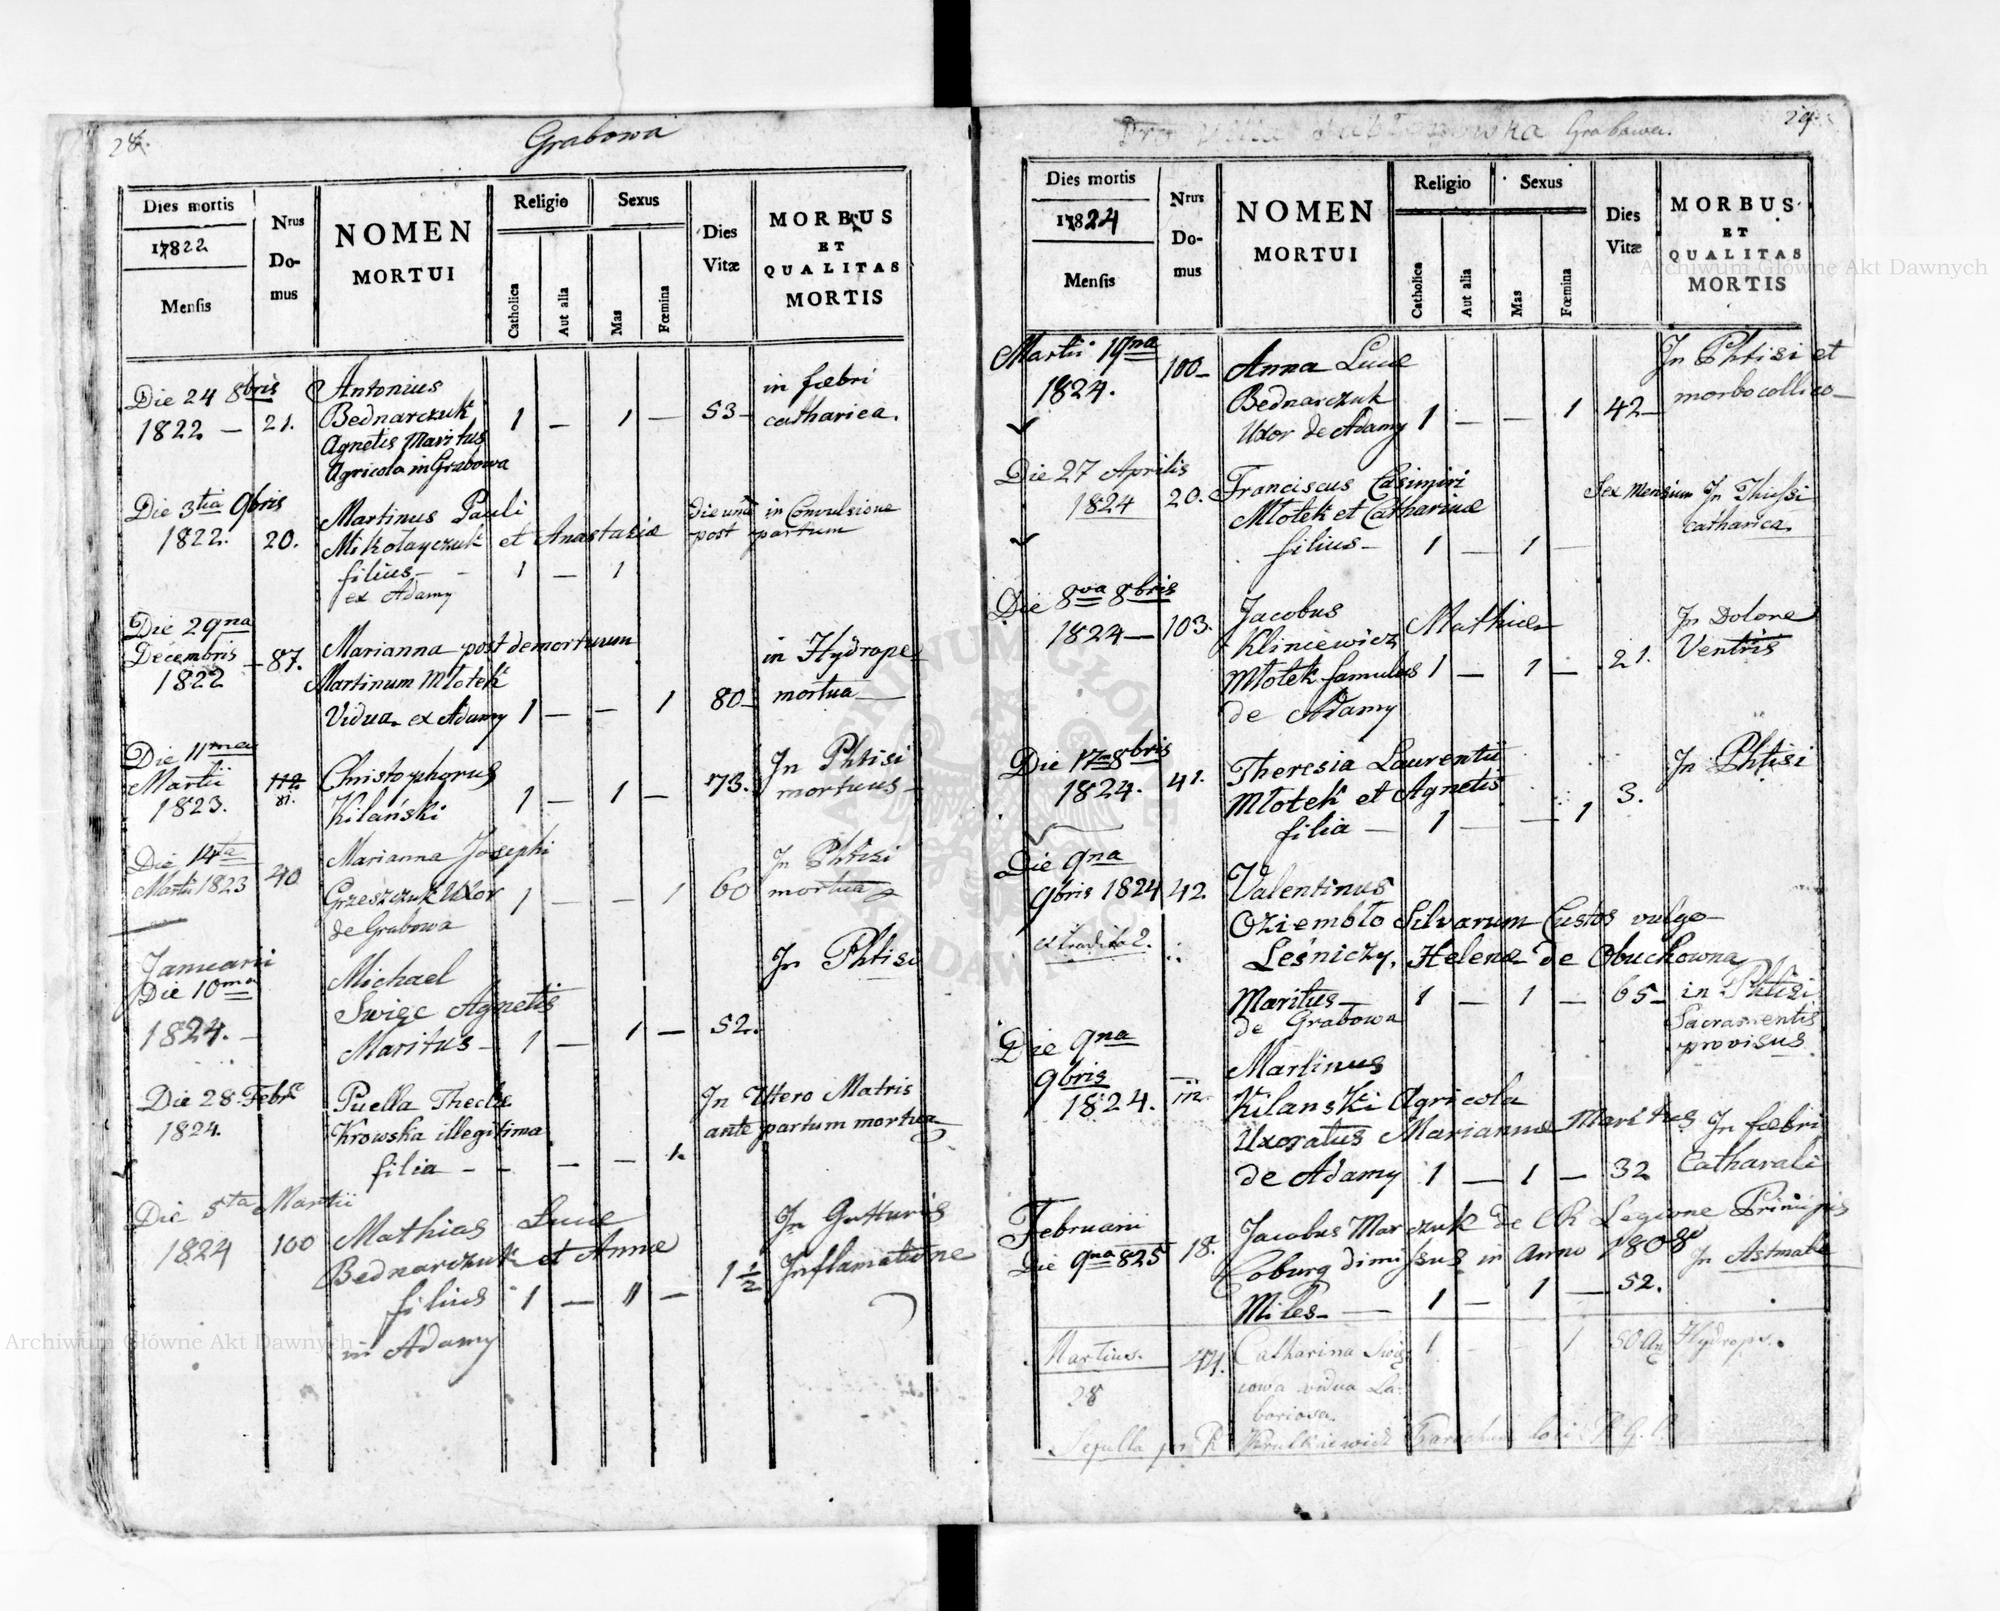 28.
Grabowa
Dies mortis
17822
Mensis
Nrus
Do-
mus
NOMEN
MORTUI
Religio
Catholica
Aut alia
Sexus
Mas
Fœmina
Dies
Vitæ
MORBUS
ET
QUALITAS
MORTIS
Die 24 8bris
1822 — 21.
Antonius
Bednarczuk
Agnetis Maritus
Agricola in Grabowa
1 — 1 — 53 —
in febri
catharica.
Die 3tia 9bris
1822. 20.
Martinus Pauli
Mikołayczuk et Anastasiæ
filius —
ex Adamy
1 — 1
Die una in Convulsione
post partum
Die 29na
Decembris
1822 — 87.
Marianna post demortuum
Martinum Młotek
Vidua ex Adamy 1 — — 1 80 —
in Hydrope
mortua —
Die 11ma
Martii
1823.
112
81.
Christophorus
Kilański
1 — 1 — 73.
In Phtisi
mortuus —
Die 14ta
Martii 1823 40
Marianna Josephi
Grzeszczuk Uxor
de Grabowa
1 — — 1 60
In Phtisi
mortua
Januarii
Die 10ma
1824. —
Michael
Swięc Agnetis
Maritus — 1 — 1 — 52.
In Phtisi
Die 28 Febr
1824.
Puella Theclæ
Krowska illegitima
filia — — — — 1.
In Uttero Matris
ante partum mortua
Die 5ta Martii
1824 100
Mathias Lucæ
Bednarczuk et Annæ
filius 1 — 1 — 1 1/2
in Adamy
In Gutturis
Inflamatione
29.
Grabowa.
Dies mortis
17824
Mensis
Nrus
Do-
mus
NOMEN
MORTUI
Religio
Catholica
Aut alia
Sexus
Mas
Fœmina
Dies
Vitæ
MORBUS
ET
QUALITAS
MORTIS
Martii 19na
1824. 100 —
Anna Lucæ
Bednarczuk
Uxor de Adamy 1 — — 1 42 —
In Phtisi et
morbo collico —
Die 27 Aprilis
1824 20.
Franciscus Casimiri
Młotek et Catharinæ
filius — 1 — 1 —
Sex Mensium In Thiessi
catharica.
Die 8va 8bris
1824 — 103.
Jacobus Mathiæ
Kliniewicz
Młotek famulus 1 — 1 — 21.
de Adamy
In Dolore
Ventris
Die 17 8bris
1824. 41.
Theresia Laurentii
Młotek et Agnetis
filia — 1 — — 1 3.
In Phtisi
Die 9na
9bris 1824 42.
Valentinus
Oziembło Silvarum Custos vulgo
Leśniczy, Helenæ de Obuchowna
Maritus — 1 — 1 — 65 —
de Grabowa
in Phtisi
Sacramentis
provisus
Die 9na
9bris
1824. 112.
Martinus
Kilanski Agricola
Uxoratus Mariannæ Maritus
de Adamy 1 — 1 — 32
In febri
Catharali
Februarii
Die 9na 825 18.
Jacobus Marczuk de CR Legione Principis
Coburg dimissus in Anno 1808
Miles — 1 — 1 — 52.
In Astmate
Martius.
28
44.
Catharina Swię
cowa vidua La-
boriosa.
1 — — 1 50 An
Hydrops.
Archiwum Główne Akt Dawnych
Archiwum Główne Akt Dawnych